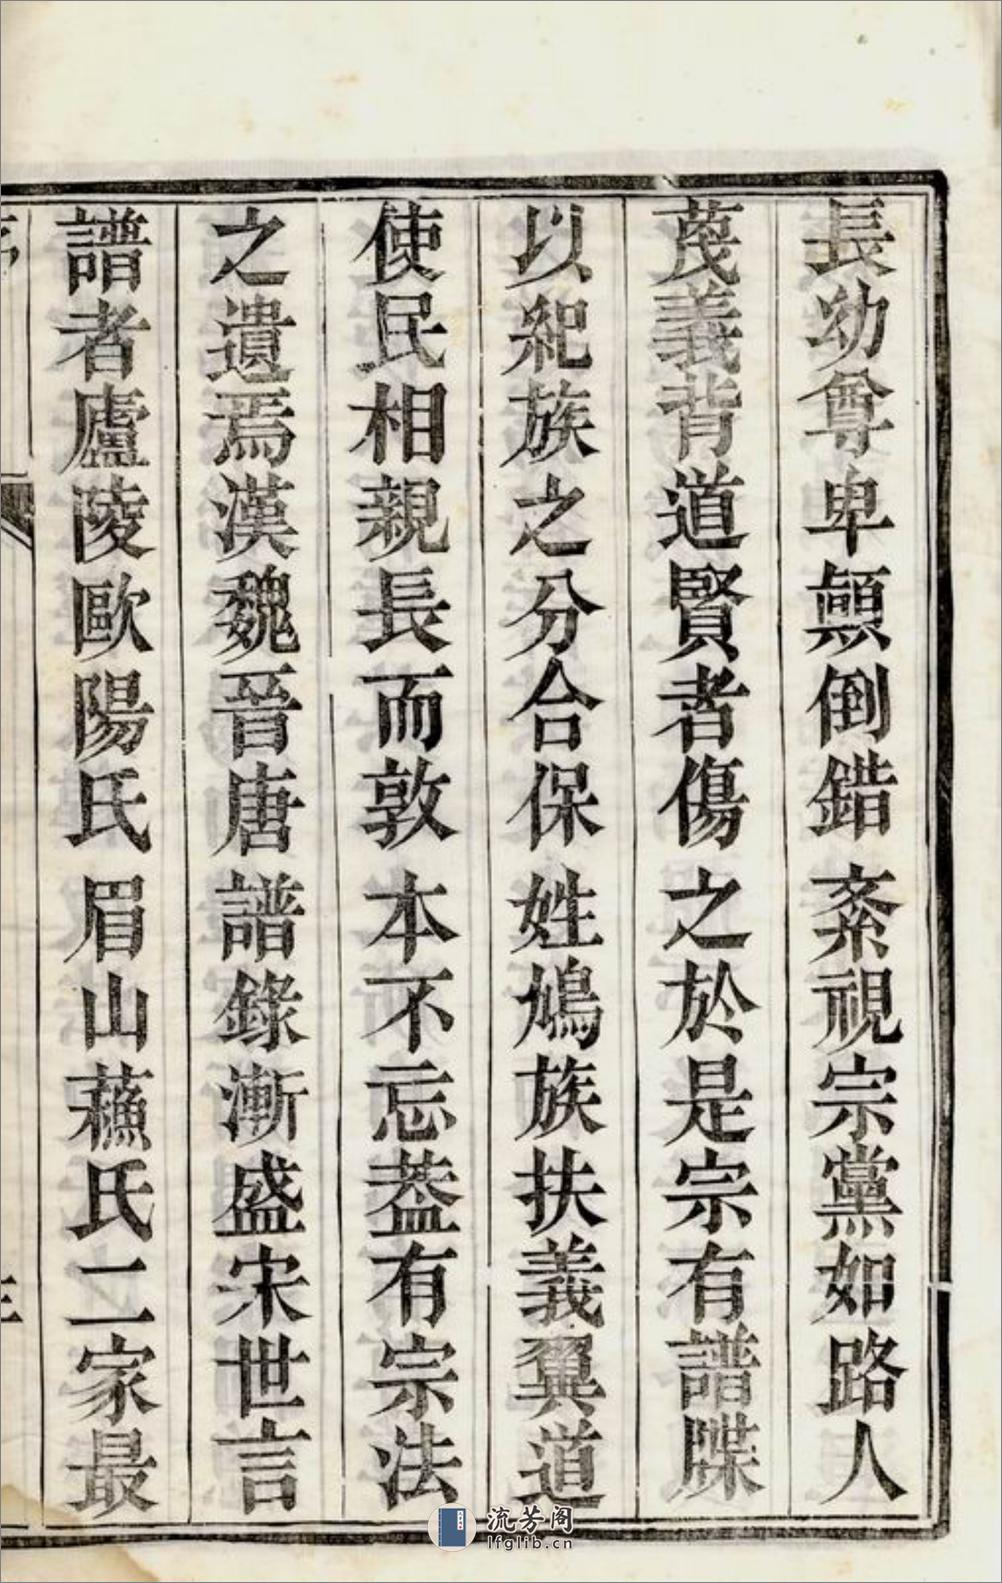 長幼尊卑顚倒錯紊視宗黨如路人
蔑義背道賢者傷之於是宗有譜牒
以紀族之分合保姓鳩族扶義翼道
使民相親長而敦本不忘葢有宗法
之遺焉漢魏晉唐譜錄漸盛宋世言
譜者廬陵歐陽氏眉山蘓氏二家最
流芳阁
lfglib.cn